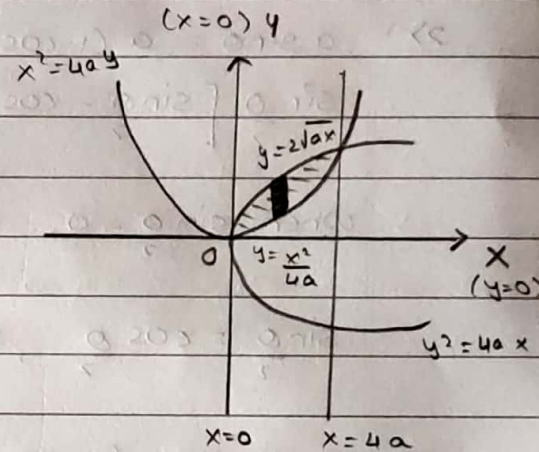 (x=0) y
x²=4ay
y=2√ax
0
y=x²/4a
X
(y=0)
y²=4ax
x=0
x=4a